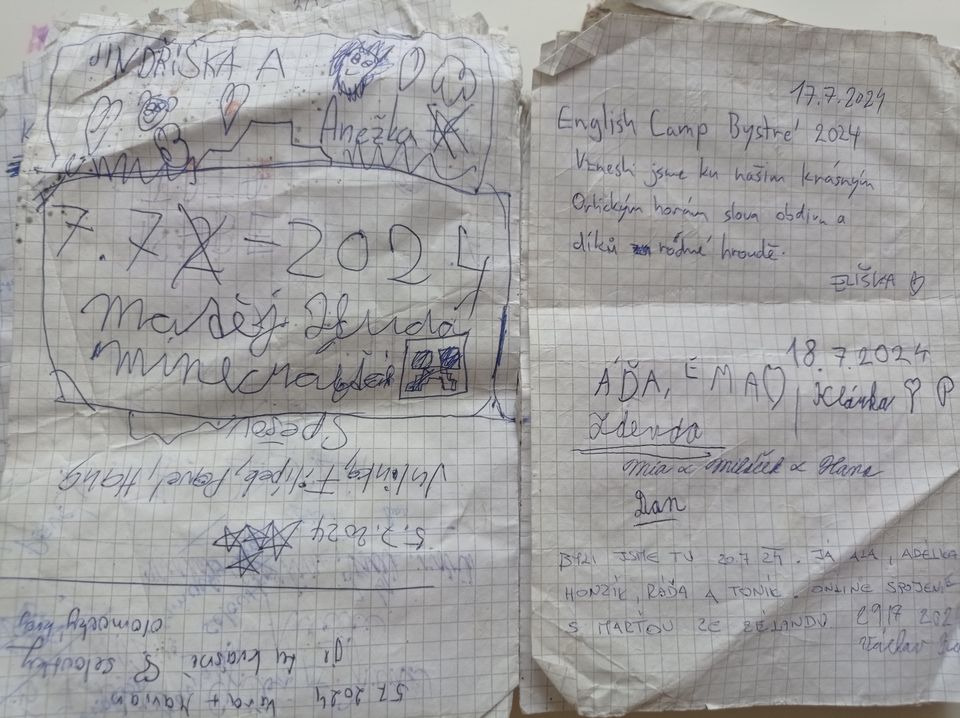 JINDŘIŠKA A
Anežka
7.7.2024
Matěj
5.7.2024
Julinka, Filípek, Pavel, Hanig
Spěšov
5.7.2024 Věra + Marian
je tu krásně
olomoučky kraj
17.7.2024
English Camp Bystré 2024
Vznesli jsme ku našim krásným
Orlickým horám slova obdivu a
díků rodné hroudě.
ELIŠKA
18.7.2024
ÁĎA, EMA
Klárka P
Zdenda
Mia & Milášek & Hana
Dan
BYLI JSME TU 20.7 24. JÁ ALA, ADÉLKA
HONZÍK, RÁĎA A TONÍK. ONLINE SPOJENÍ
S MARŤOU ZE ZÉLANDU
29/7 202
Václav